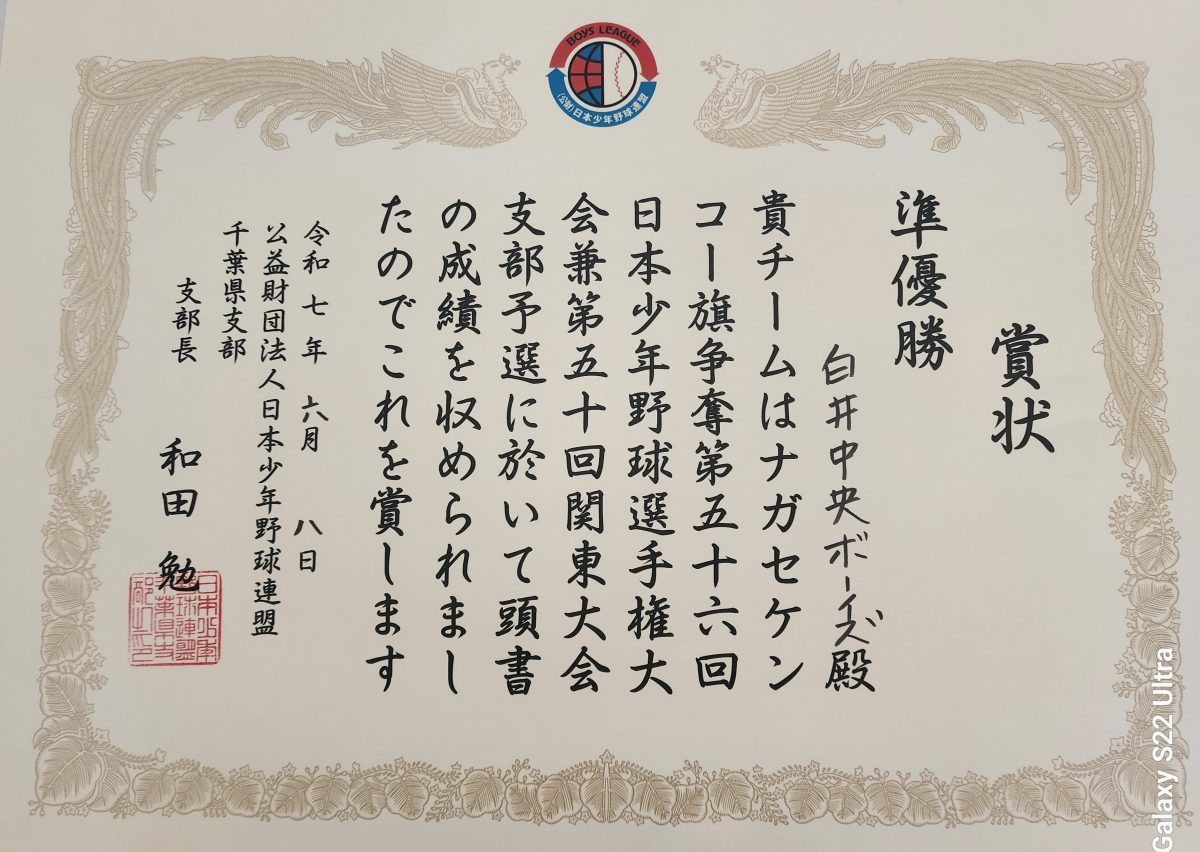 BOYS LEAGUE
(公財)日本少年野球連盟
賞状
準優勝
白井中央ボーイズ殿
貴チームはナガセケン
コー旗争奪第五十六回
日本少年野球選手権大
会兼第五十回関東大会
支部予選に於いて頭書
の成績を収められまし
たのでこれを賞します
令和七年六月八日
公益財団法人日本少年野球連盟
千葉県支部
支部長 和田勉
Galaxy S22 Ultra